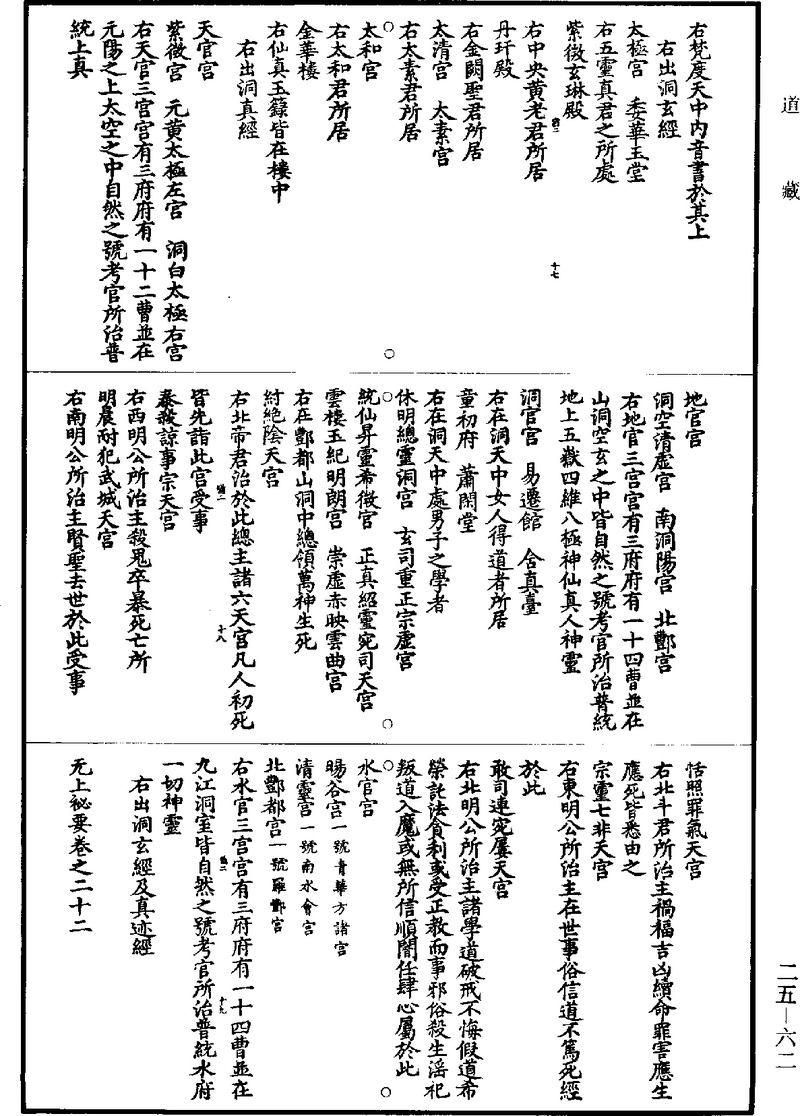 道藏
右梵度天中內音書於其上
右出洞玄經
太極宮　委華玉堂
右五靈真君之所處
紫微玄琳殿
右中央黃老君所居
十七
丹玕殿
右金闕聖君所居
太清宮　太素宮
右太素君所居
太和宮
右太和君所居
金華樓
右仙真玉籙皆在樓中
右出洞真經
天官宮
紫微宮　元黃太極左宮　洞白太極右宮
右天官三宮宮有三府府有一十二曹並在
元陽之上太空之中自然之號考官所治普
統上真
地官宮
洞空清虛宮　南洞陽宮　北酆宮
右地官三宮宮有三府府有一十四曹並在
山洞空玄之中皆自然之號考官所治普統
地上五嶽四維八極神仙真人神靈
洞官宮　易遷館　舍真臺
右在洞天中女人得道者所居
童初府　蕭閑堂
右在洞天中處男子之學者
休明總靈洞宮　玄司重正宗虛宮
統仙昇靈希微宮　正真紹靈宛司天宮
雲樓玉紀明朗宮　崇虛赤映雲曲宮
右在酆都山洞中總領萬神生死
紂絕陰天宮
右北帝君治於此總主諸六天宮凡人初死
十八
皆先詣此宮受事
泰殺諒事宗天宮
右西明公所治主殺鬼卒暴死亡所
明晨耐犯武城天宮
右南明公所治主賢聖去世於此受事
恬照罪氣天宮
右北斗君所治主禍福吉凶續命罪害應生
應死皆悉由之
宗靈七非天宮
右東明公所治主在世事俗信道不篤死經
於此
敢司連宛屢天宮
右北明公所治主諸學道破戒不悔假道希
榮託法貪利或受正教而事邪俗殺生淫祀
叛道入魔或無所信順闇任肆心屬於此
水官宮
暘谷宮一號青華方諸宮
清靈宮一號南水會宮
北酆都宮一號羅酆宮
右水官三宮宮有三府府有一十四曹並在
十九
九江洞室皆自然之號考官所治普統水府
一切神靈
右出洞玄經及真迹經
无上祕要卷之二十二
二五—六二